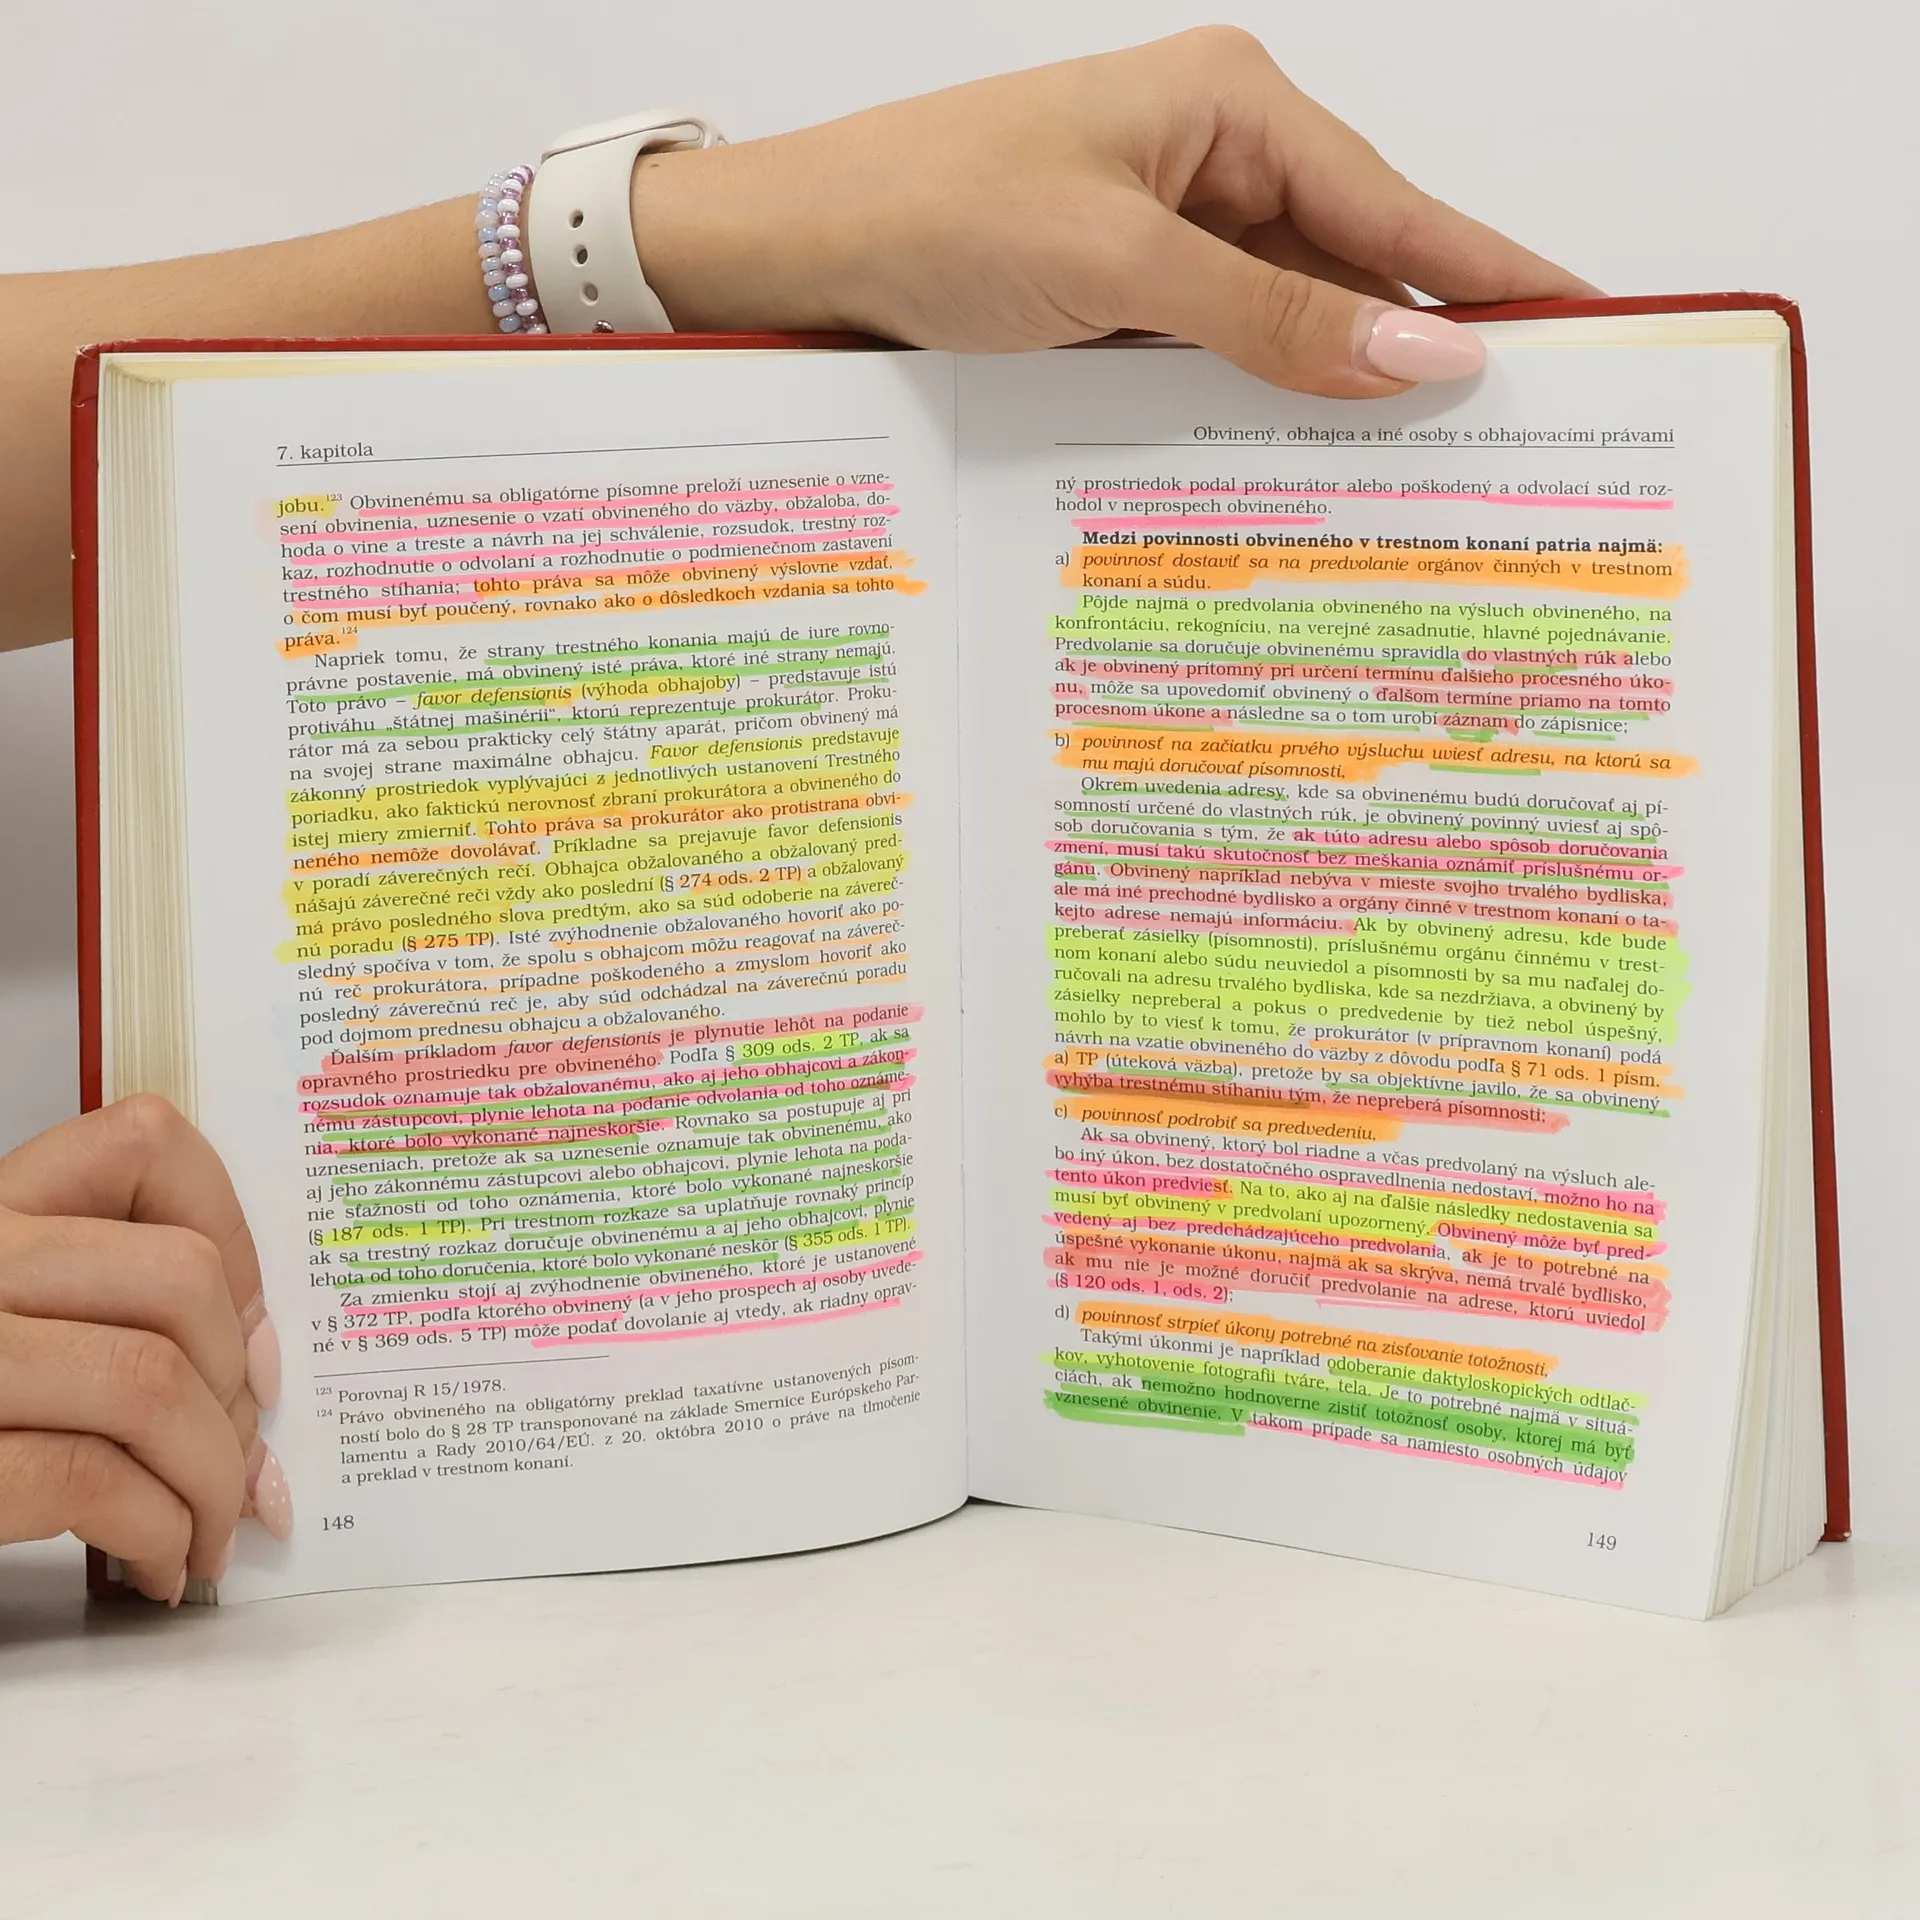 7. kapitola
jobu.¹²³ Obvinenému sa obligatórne písomne preloží uznesenie o vzne-
sení obvinenia, uznesenie o vzatí obvineného do väzby, obžaloba, do-
hoda o vine a treste a návrh na jej schválenie, rozsudok, trestný roz-
kaz, rozhodnutie o odvolaní a rozhodnutie o podmienečnom zastavení
trestného stíhania; tohto práva sa môže obvinený výslovne vzdať,
o čom musí byť poučený, rovnako ako o dôsledkoch vzdania sa tohto
práva.¹²⁴
Napriek tomu, že strany trestného konania majú de iure rovno-
právne postavenie, má obvinený isté práva, ktoré iné strany nemajú.
Toto právo – favor defensionis (výhoda obhajoby) – predstavuje istú
protiváhu „štátnej mašinérii“, ktorú reprezentuje prokurátor. Proku-
rátor má za sebou prakticky celý štátny aparát, pričom obvinený má
na svojej strane maximálne obhajcu. Favor defensionis predstavuje
zákonný prostriedok vyplývajúci z jednotlivých ustanovení Trestného
poriadku, ako faktickú nerovnosť zbraní prokurátora a obvineného do
istej miery zmierniť. Tohto práva sa prokurátor ako protistrana obvi-
neného nemôže dovolávať. Príkladne sa prejavuje favor defensionis
v poradí záverečných rečí. Obhajca obžalovaného a obžalovaný pred-
nášajú záverečné reči vždy ako poslední (§ 274 ods. 2 TP) a obžalovaný
má právo posledného slova predtým, ako sa súd odoberie na závereč-
nú poradu (§ 275 TP). Isté zvýhodnenie obžalovaného hovoriť ako po-
sledný spočíva v tom, že spolu s obhajcom môžu reagovať na závereč-
nú reč prokurátora, prípadne poškodeného a zmyslom hovoriť ako
posledný záverečnú reč je, aby súd odchádzal na záverečnú poradu
pod dojmom prednesu obhajcu a obžalovaného.
Ďalším príkladom favor defensionis je plynutie lehôt na podanie
opravného prostriedku pre obvineného. Podľa § 309 ods. 2 TP, ak sa
rozsudok oznamuje tak obžalovanému, ako aj jeho obhajcovi a zákon-
nému zástupcovi, plynie lehota na podanie odvolania od toho oznáme-
nia, ktoré bolo vykonané najneskoršie. Rovnako sa postupuje aj pri
uzneseniach, pretože ak sa uznesenie oznamuje tak obvinenému, ako
aj jeho zákonnému zástupcovi alebo obhajcovi, plynie lehota na poda-
nie sťažnosti od toho oznámenia, ktoré bolo vykonané najneskoršie
(§ 187 ods. 1 TP). Pri trestnom rozkaze sa uplatňuje rovnaký princíp
ak sa trestný rozkaz doručuje obvinenému a aj jeho obhajcovi, plynie
lehota od toho doručenia, ktoré bolo vykonané neskôr (§ 355 ods. 1 TP).
Za zmienku stojí aj zvýhodnenie obvineného, ktoré je ustanovené
v § 372 TP, podľa ktorého obvinený (a v jeho prospech aj osoby uvede-
né v § 369 ods. 5 TP) môže podať dovolanie aj vtedy, ak riadny oprav-
¹²³ Porovnaj R 15/1978.
¹²⁴ Právo obvineného na obligatórny preklad taxatívne ustanovených písom-
ností bolo do § 28 TP transponované na základe Smernice Európskeho Par-
lamentu a Rady 2010/64/EÚ. z 20. októbra 2010 o práve na tlmočenie
a preklad v trestnom konaní.
148
Obvinený, obhajca a iné osoby s obhajovacími právami
ný prostriedok podal prokurátor alebo poškodený a odvolací súd roz-
hodol v neprospech obvineného.
Medzi povinnosti obvineného v trestnom konaní patria najmä:
a) povinnosť dostaviť sa na predvolanie orgánov činných v trestnom
konaní a súdu.
Pôjde najmä o predvolania obvineného na výsluch obvineného, na
konfrontáciu, rekogníciu, na verejné zasadnutie, hlavné pojednávanie.
Predvolanie sa doručuje obvinenému spravidla do vlastných rúk alebo
ak je obvinený prítomný pri určení termínu ďalšieho procesného úko-
nu, môže sa upovedomiť obvinený o ďalšom termíne priamo na tomto
procesnom úkone a následne sa o tom urobí záznam do zápisnice;
b) povinnosť na začiatku prvého výsluchu uviesť adresu, na ktorú sa
mu majú doručovať písomnosti,
Okrem uvedenia adresy, kde sa obvinenému budú doručovať aj pí-
somností určené do vlastných rúk, je obvinený povinný uviesť aj spô-
sob doručovania s tým, že ak túto adresu alebo spôsob doručovania
zmení, musí takú skutočnosť bez meškania oznámiť príslušnému or-
gánu. Obvinený napríklad nebýva v mieste svojho trvalého bydliska,
ale má iné prechodné bydlisko a orgány činné v trestnom konaní o ta-
kejto adrese nemajú informáciu. Ak by obvinený adresu, kde bude
preberať zásielky (písomnosti), príslušnému orgánu činnému v trest-
nom konaní alebo súdu neuviedol a písomnosti by sa mu naďalej do-
ručovali na adresu trvalého bydliska, kde sa nezdržiava, a obvinený by
zásielky nepreberal a pokus o predvedenie by tiež nebol úspešný,
mohlo by to viesť k tomu, že prokurátor (v prípravnom konaní) podá
návrh na vzatie obvineného do väzby z dôvodu podľa § 71 ods. 1 písm.
a) TP (úteková väzba), pretože by sa objektívne javilo, že sa obvinený
vyhýba trestnému stíhaniu tým, že nepreberá písomnosti;
c) povinnosť podrobiť sa predvedeniu,
Ak sa obvinený, ktorý bol riadne a včas predvolaný na výsluch ale-
bo iný úkon, bez dostatočného ospravedlnenia nedostaví, možno ho na
tento úkon predviesť. Na to, ako aj na ďalšie následky nedostavenia sa
musí byť obvinený v predvolaní upozornený. Obvinený môže byť pred-
vedený aj bez predchádzajúceho predvolania, ak je to potrebné na
úspešné vykonanie úkonu, najmä ak sa skrýva, nemá trvalé bydlisko,
ak mu nie je možné doručiť predvolanie na adrese, ktorú uviedol
(§ 120 ods. 1, ods. 2);
d) povinnosť strpieť úkony potrebné na zisťovanie totožnosti,
Takými úkonmi je napríklad odoberanie daktyloskopických odtlač-
kov, vyhotovenie fotografií tváre, tela. Je to potrebné najmä v situá-
ciách, ak nemožno hodnoverne zistiť totožnosť osoby, ktorej má byť
vznesené obvinenie. V takom prípade sa namiesto osobných údajov
149